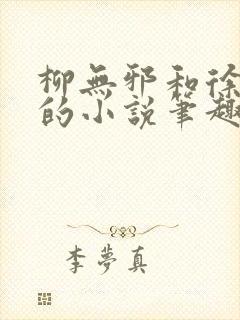 柳無邪和徐
的小說筆趣
李夢真